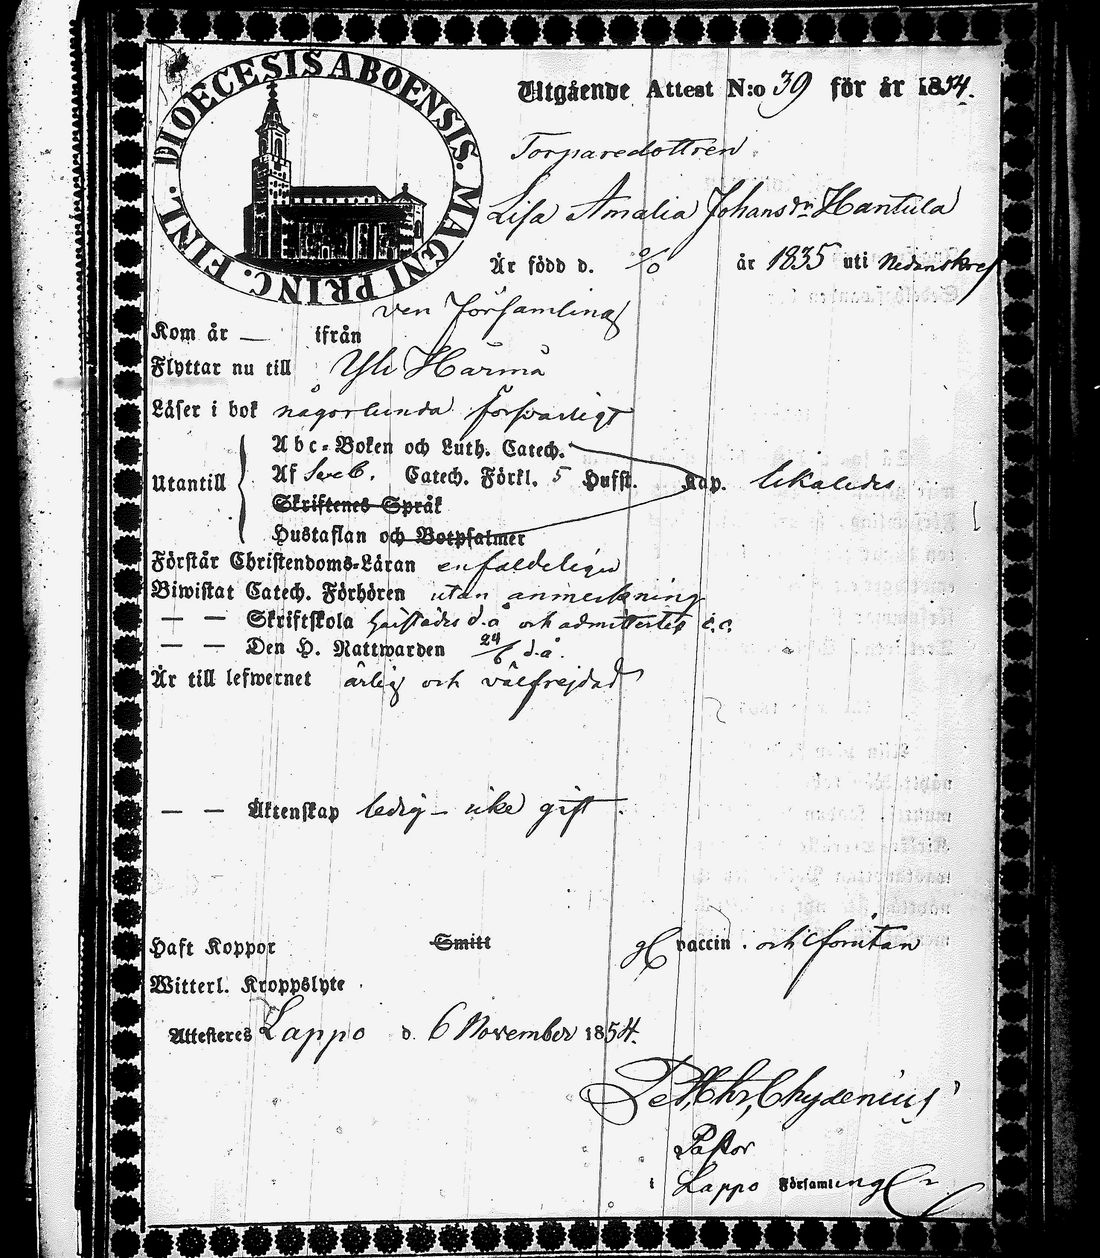 DIOECESIS ABOENSIS. MAGNI PRINC. FINL.
Utgående Attest N:o 39 för år 1854.
Torparedottren
Lisa Amalia Johansdr Hantula
Är född d. % år 1835 uti nedanskref
ven Församling
Kom år — ifrån
Flyttar nu till Yli Härmä
Läser i bok någorlunda försvarligt
Utantill
Abc-Boken och Luth. Catech.
Af Sveb. Catech. Förkl. 5 Hufst. Kap. likaledes
Skriftenes Språk
Hustaflan och Botpsalmer
Förstår Christendoms-Läran enfaldeligen
Biwistat Catech. Förhören utan anmerkning
— — Skriftskola d.å och admitterdes
— — Den H. Nattwarden 24/6 d.å.
Är till lefwernet ärlig och välfrejdad
— — Äktenskap ledig – icke gift
Haft Koppor Smitt vaccin. och
Witterl. Kroppslyte
Attesteres Lappo d. 6 November 1854.
Pet. Chr. Chydenius
Pastor
i Lappo Församling